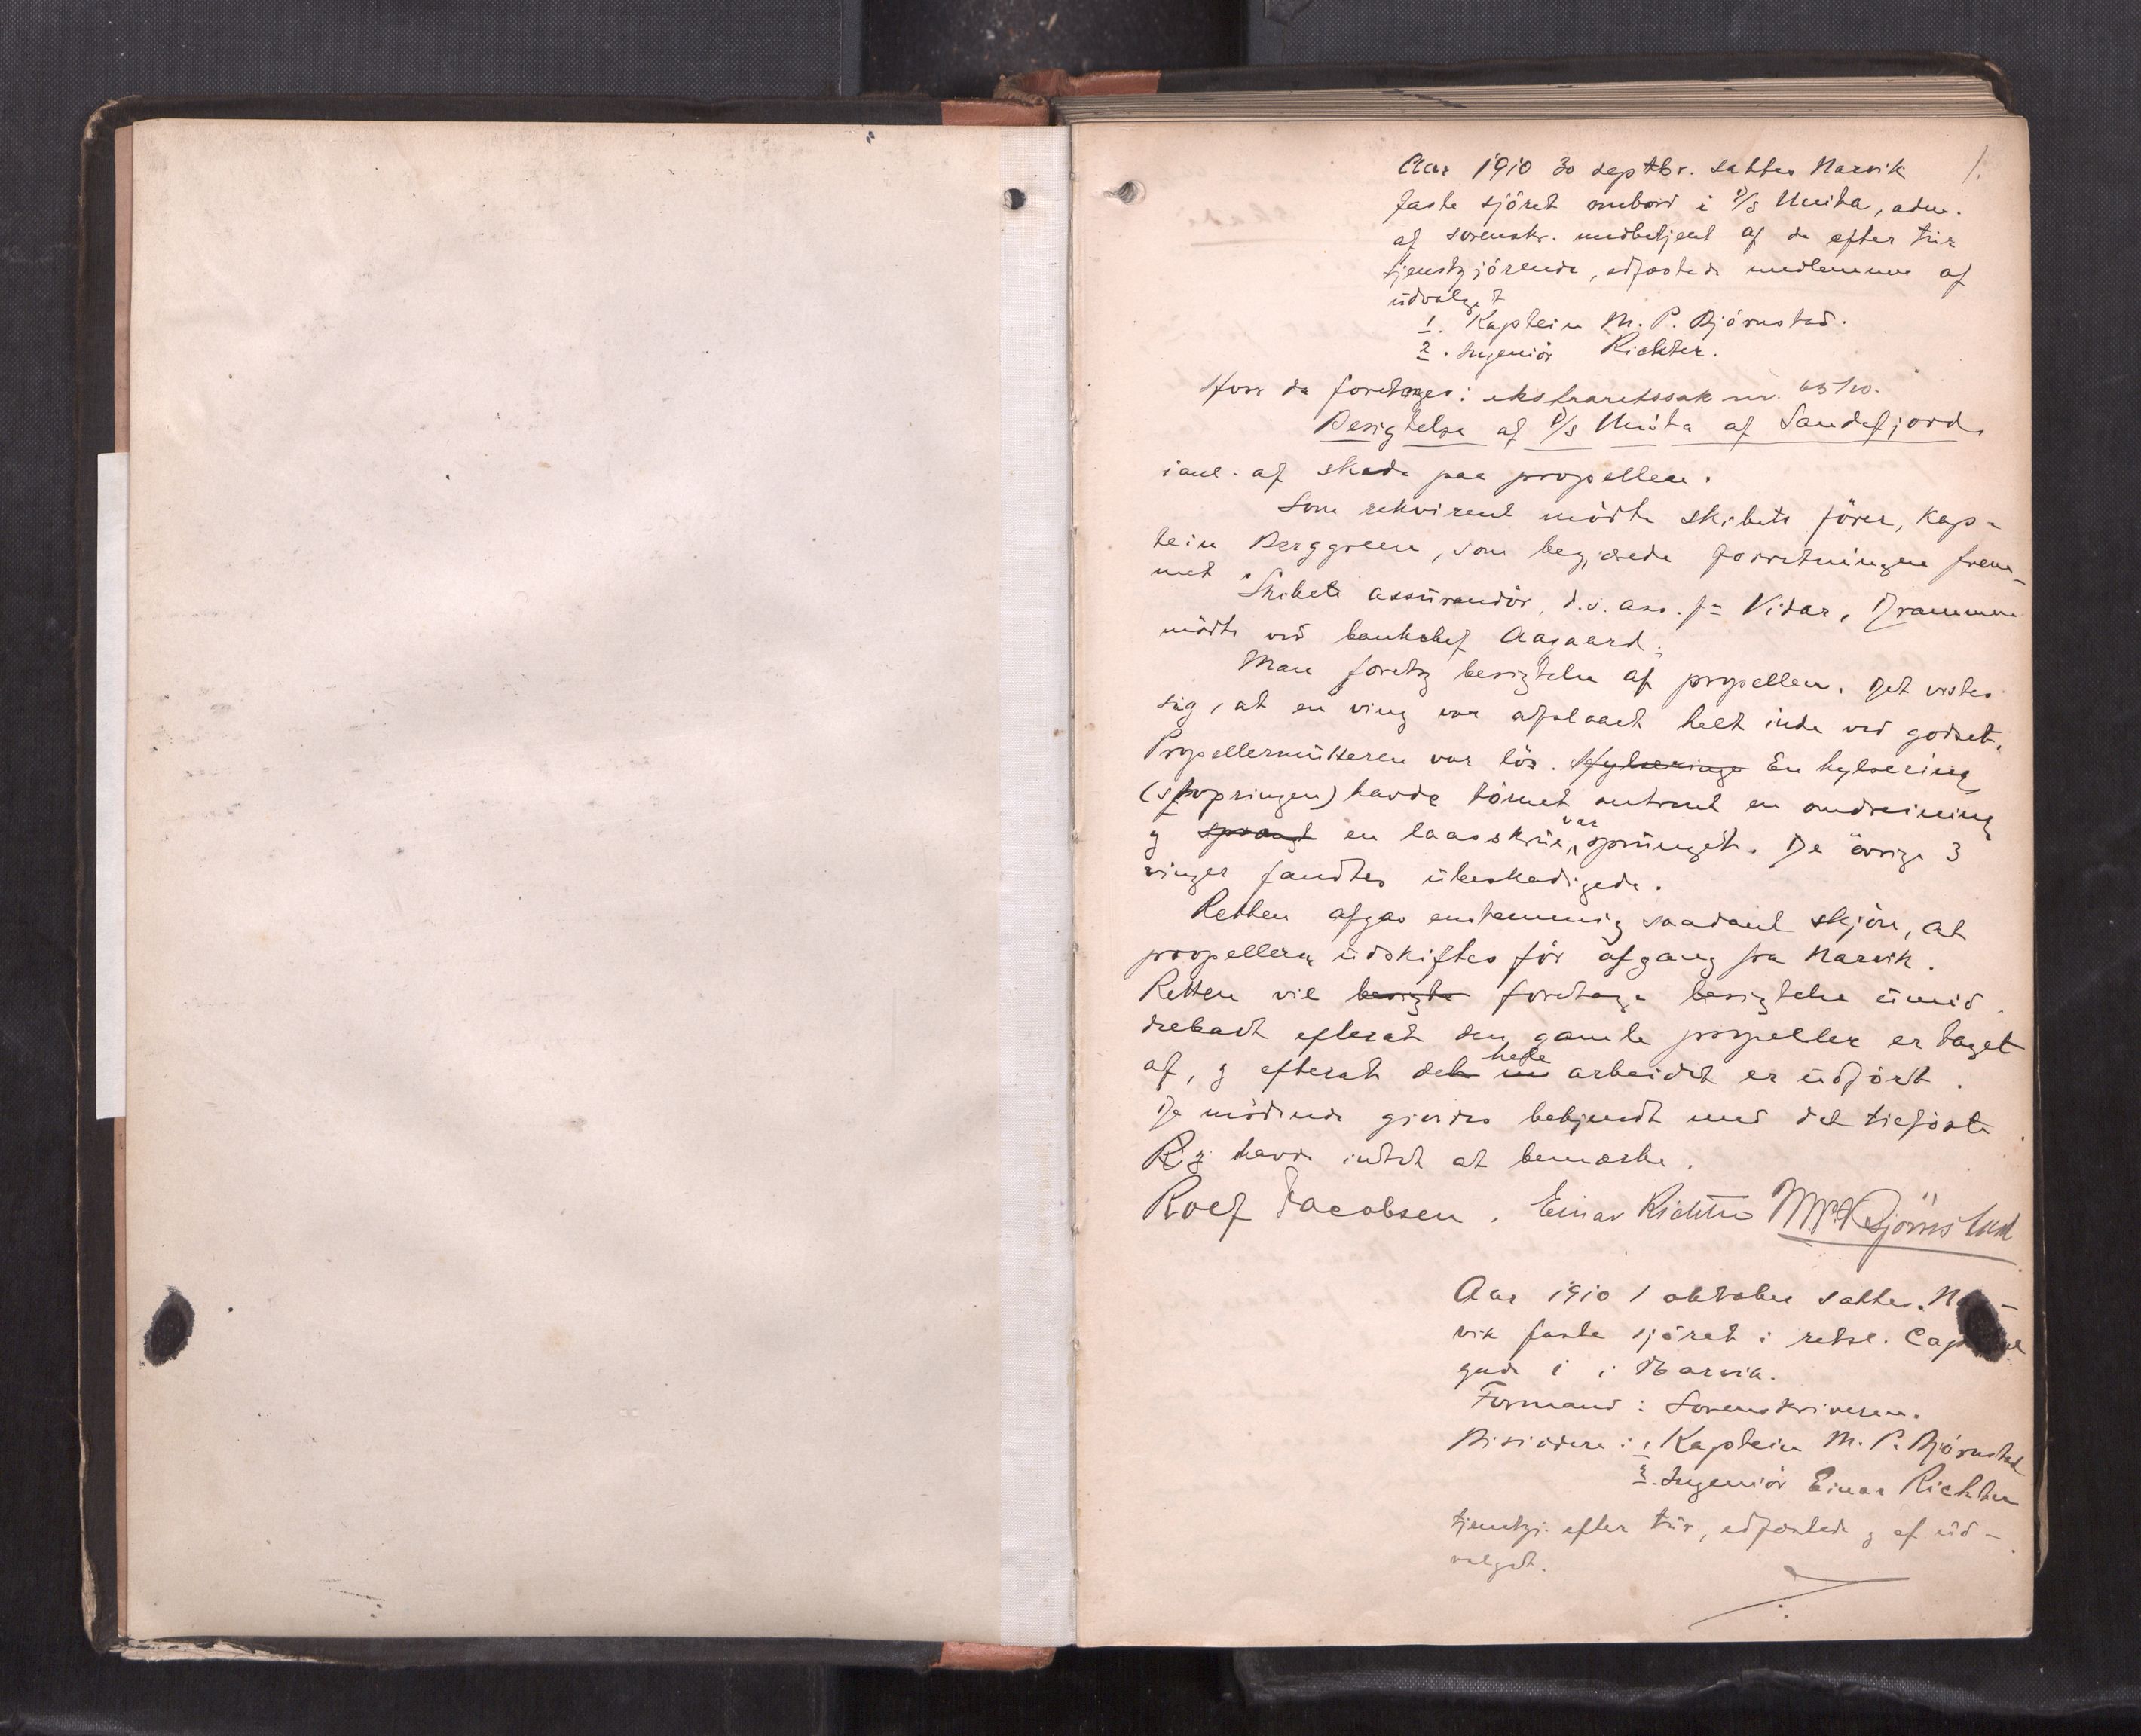 1.
Aar 1910 30 septbr. sattes Narvik
faste sjöret ombord i D/S Unita, adm.
af sorenskr. medbetjent af de efter tür
tjenstgjörende, edfæstede medlemmer af
üdvalget
1. Kaptein M. P. Björnstad.
2. Ingeniör Richter.
Hvor da foretoges: ekstraretssak nr. /10.
Besigtelse af D/S Unita af Sandefjord
i anl. af skade paa propellen.
Som rekvirent mödte skibets förer, kap-
tein Berggreen, som begjærede forretningen frem-
met Skibets assürandör, d.v. ass. f= Vidar, Drammen
mödte ved bankchef Aagaard.
Man foretog besigtelse af propellen. Det vistes
sig, at en ving var afslaaet helt inde ved godset.
Propellermütteren var lös. Hylseringe En hylsering
(stopringen) havde törnet omtrent en omdreining
og sprængt en laasskrüe var sprünget. De övrige 3
vinger fandtes übeskadigede.
Retten afgav enstemmig saadant skjön, at
propelleren üdskiftes för afgang fra Narvik.
Retten vil besigte foretage besigtelse ümid
delbart efterat den gamle propeller er taget
af, og efterat det hele arbeidet er üdfört.
De mödende gjordes bekjendt med det tilförte
R. og havde intet at bemærke.
Rolf Jacobsen. Einar Richter M P Björnstad
Aar 1910 1 oktober sattes Nar-
vik faste sjöret i retsl.
gade 1 i Narvik.
Formand: Sorenskriveren.
Bisiddere: 1 Kaptein M. P. Björnstad
2. Ingeniör Einar Richter
tjenstgj. efter tür, edfæstede og af üd-
valget.